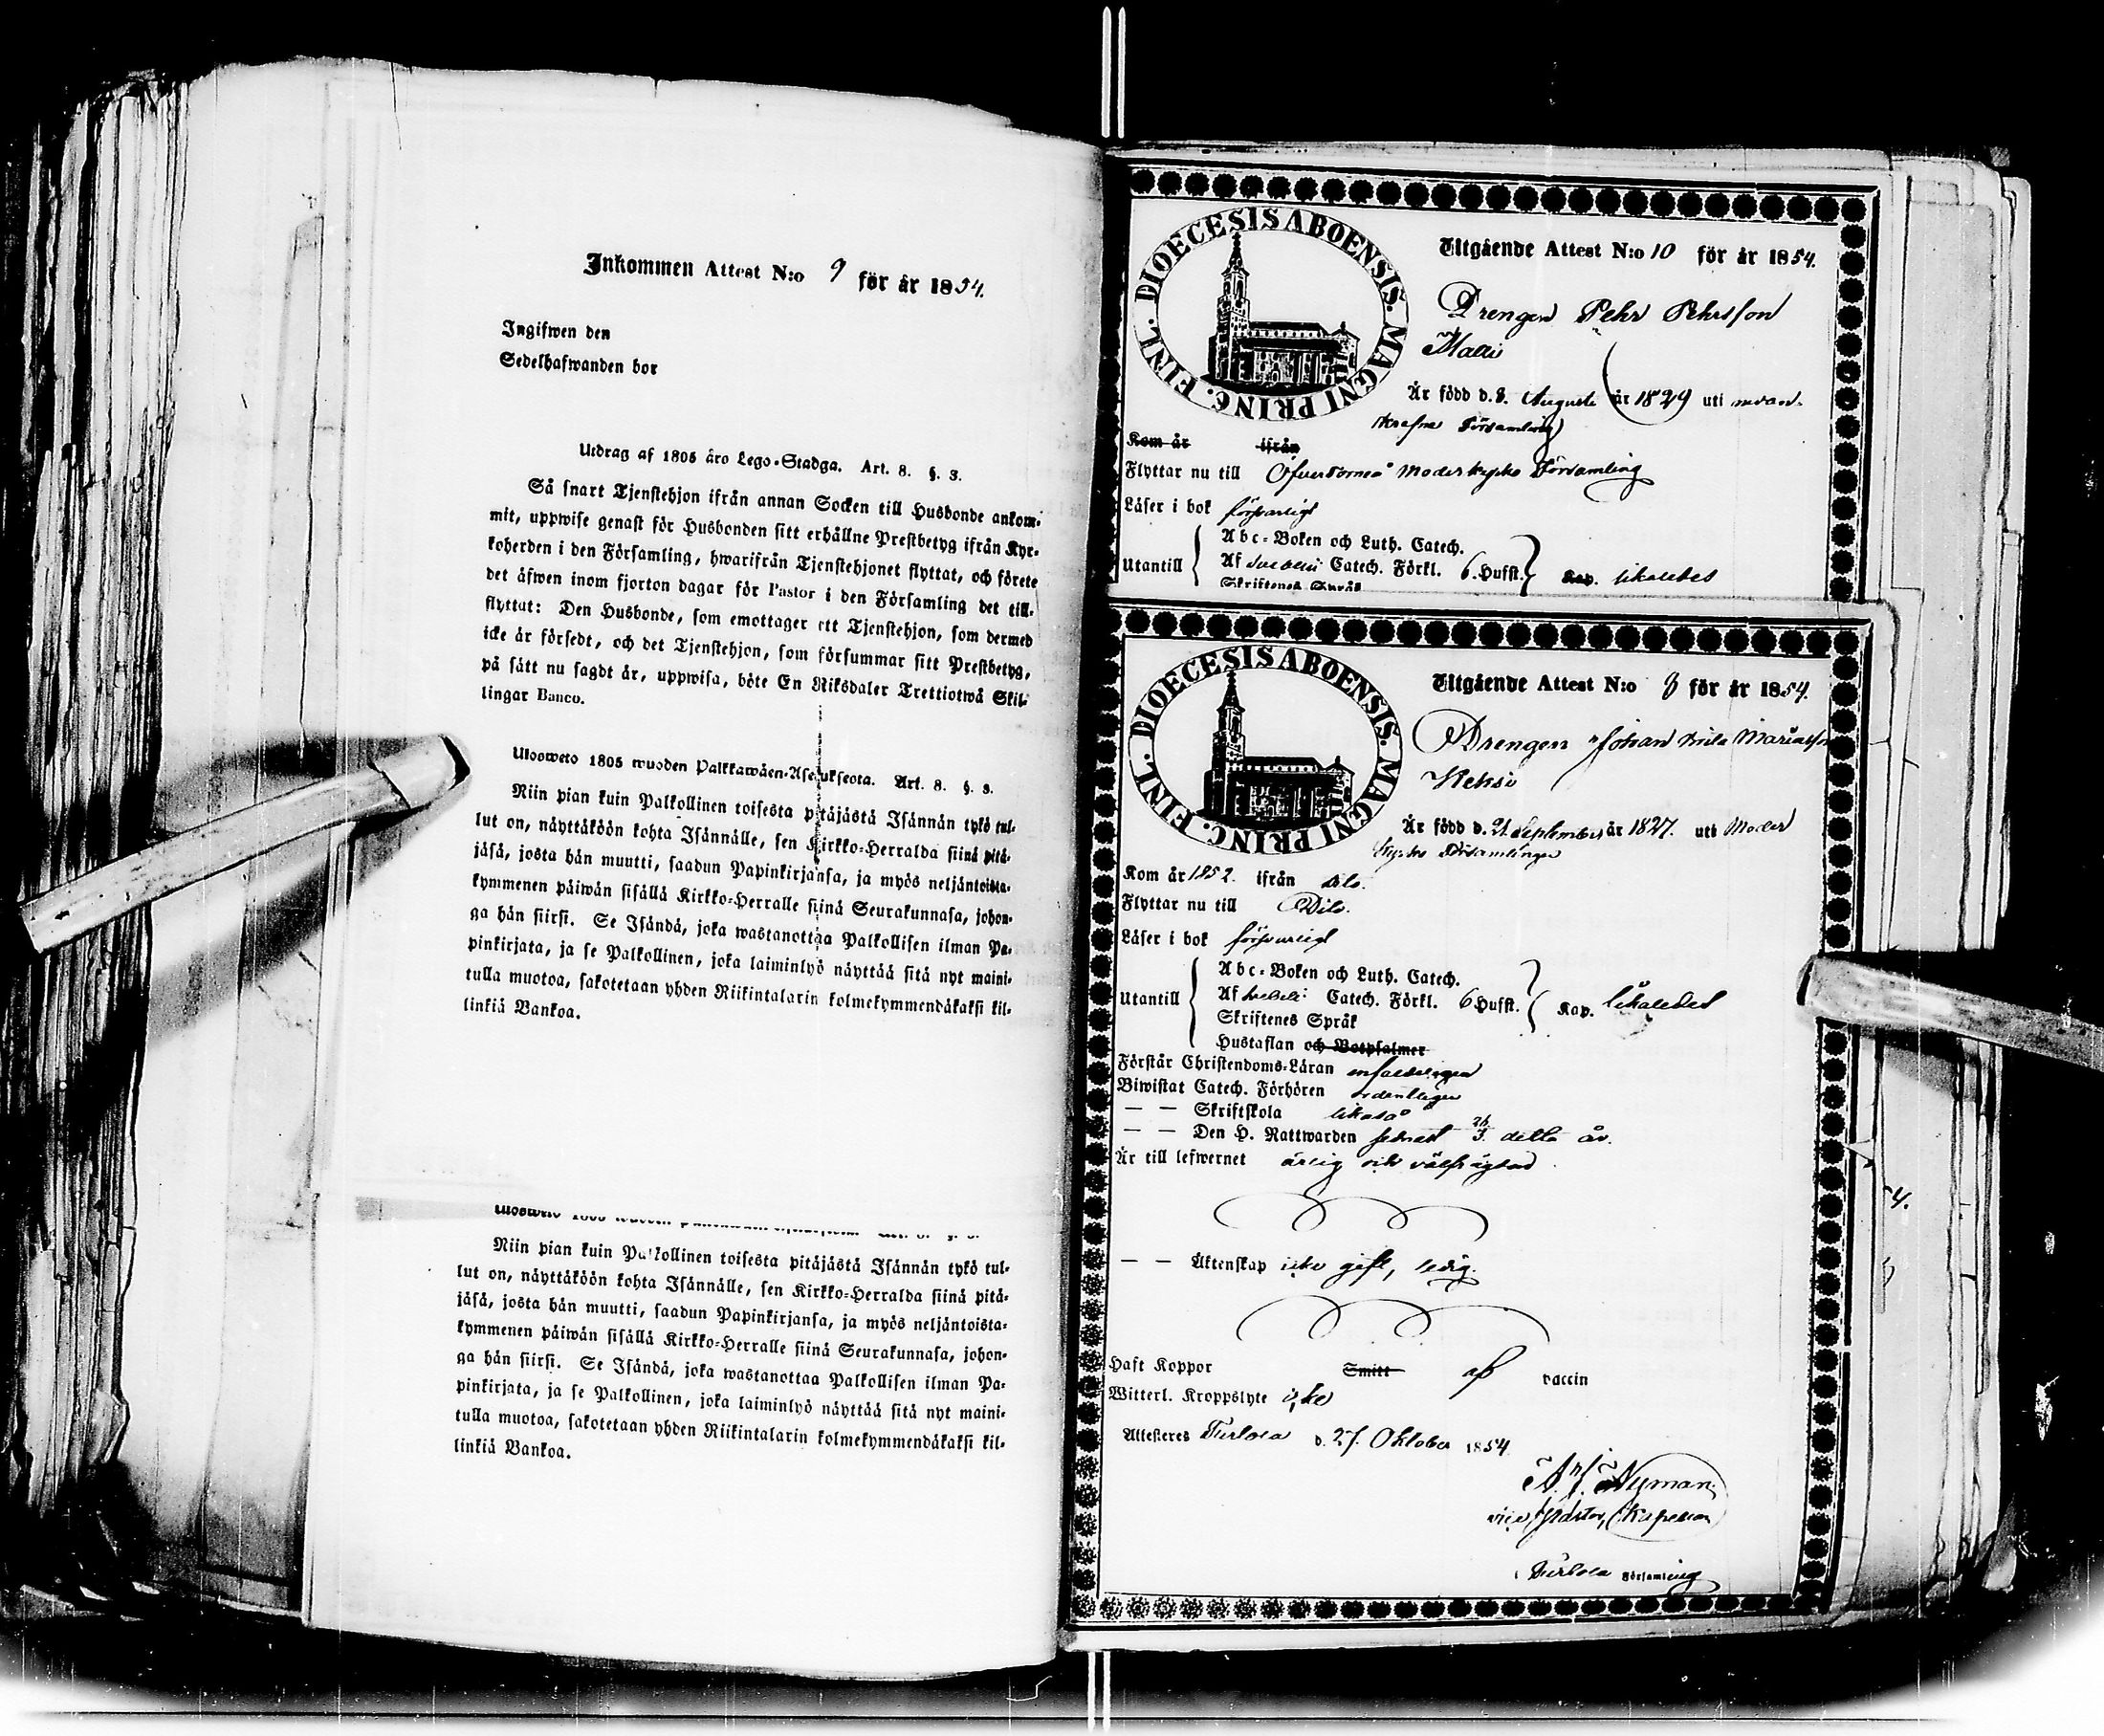 Inkommen Attest N:o 9 för år 1854.
Ingifwen den
Sedelhafwanden bor
Utdrag af 1805 åro Lego-Stadga. Art. 8. §. 3.
Så snart Tjenstehjon ifrån annan Socken till Husbonde ankom-
mit, uppwise genast för Husbonden sitt erhållne Prestbetyg ifrån Kyr-
koherden i den Församling, hwarifrån Tjenstehjonet flyttat, och förete
det äfwen inom fjorton dagar för Pastor i den Församling det till-
flyttat: Den Husbonde, som emottager ett Tjenstehjon, som dermed
icke är försedt, och det Tjenstehjon, som försummar sitt Prestbetyg,
på sätt nu sagdt är, uppwisa, böte En Riksdaler Trettiotwå Skil-
lingar Banco.
Ulosweto 1805 wuoden Palkkawäen-Asetukseota. Art. 8. §. 3.
Niin pian kuin Palkollinen toisesta pitäjästä Isännän tykö tul-
lut on, näyttäköön kohta Isännälle, sen Kirkko-Herralda siinä pitä-
jäsä, josta hän muutti, saadun Papinkirjansa, ja myös neljäntoista-
kymmenen päiwän sisällä Kirkko-Herralle siinä Seurakunnasa, johon-
ga hän siirsi. Se Isändä, joka wastanottaa Palkollisen ilman Pa-
pinkirjata, ja se Palkollinen, joka laiminlyö näyttää sitä nyt maini-
tulla muotoa, sakotetaan yhden Riikintalarin kolmekymmendäkaksi kil-
linkiä Bankoa.
Niin pian kuin Palkollinen toisesta pitäjästä Isännän tykö tul-
lut on, näyttäköön kohta Isännälle, sen Kirkko-Herralda siinä pitä-
jäsä, josta hän muutti, saadun Papinkirjansa, ja myös neljäntoista-
kymmenen päiwän sisällä Kirkko-Herralle siinä Seurakunnasa, johon-
ga hän siirsi. Se Isändä, joka wastanottaa Palkollisen ilman Pa-
pinkirjata, ja se Palkollinen, joka laiminlyö näyttää sitä nyt maini-
tulla muotoa, sakotetaan yhden Riikintalarin kolmekymmendäkaksi kil-
linkiä Bankoa.
DIOECESIS ABOENSIS. MAGNI PRINC. FINL.
Utgående Attest N:o 10 för år 1854.
Drengen Pehr Pehrsson
Är född d. 8. Augusti år 1829 uti
Församling
Kom år ifrån
Flyttar nu till Öfvertorneå Moderkyrko Församling
Läser i bok försvarligt
Utantill
Abc-Boken och Luth. Catech.
Af Svebelii Catech. Förkl. 6. Hufst. Kap. likaledes
Skriftenes Språk
DIOECESIS ABOENSIS. MAGNI PRINC. FINL.
Utgående Attest N:o 8 för år 1854.
Drengen Johan
Keksi
Är född d. 21 September år 1827. uti Moder
kyrko Församlingen
Kom år 1852. ifrån dito.
Flyttar nu till Dito.
Läser i bok försvarligt
Utantill
Abc-Boken och Luth. Catech.
Af Svebelii Catech. Förkl. 6 Hufst. Kap. likaledes
Skriftenes Språk
Hustaflan och Botpsalmer
Förstår Christendoms-Läran enfaldeligen
Biwistat Catech. Förhören ordentligen
— — Skriftskola likaså
— — Den H. Nattwarden sednast detta år.
Är till lefwernet ärlig och välfrägdad
— — Äktenskap icke gift, ledig.
Haft Koppor Smitt af vaccin
Witterl. Kroppslyte icke
Attesteres Turtola d. 27. Oktober 1854
Nyman.
vice Pastor, Kapellan
Turtola Församling